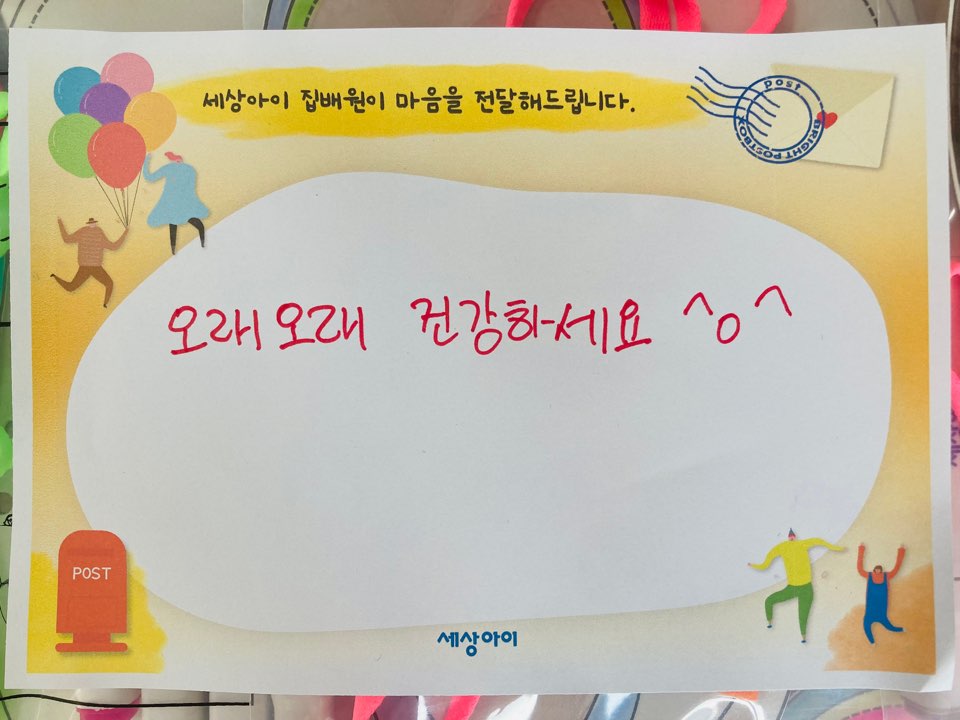 세상아이 집배원이 마음을 전달해드립니다.
post
BRIGHT POSTBOX
오래오래 건강하세요 ^o^
POST
세상아이